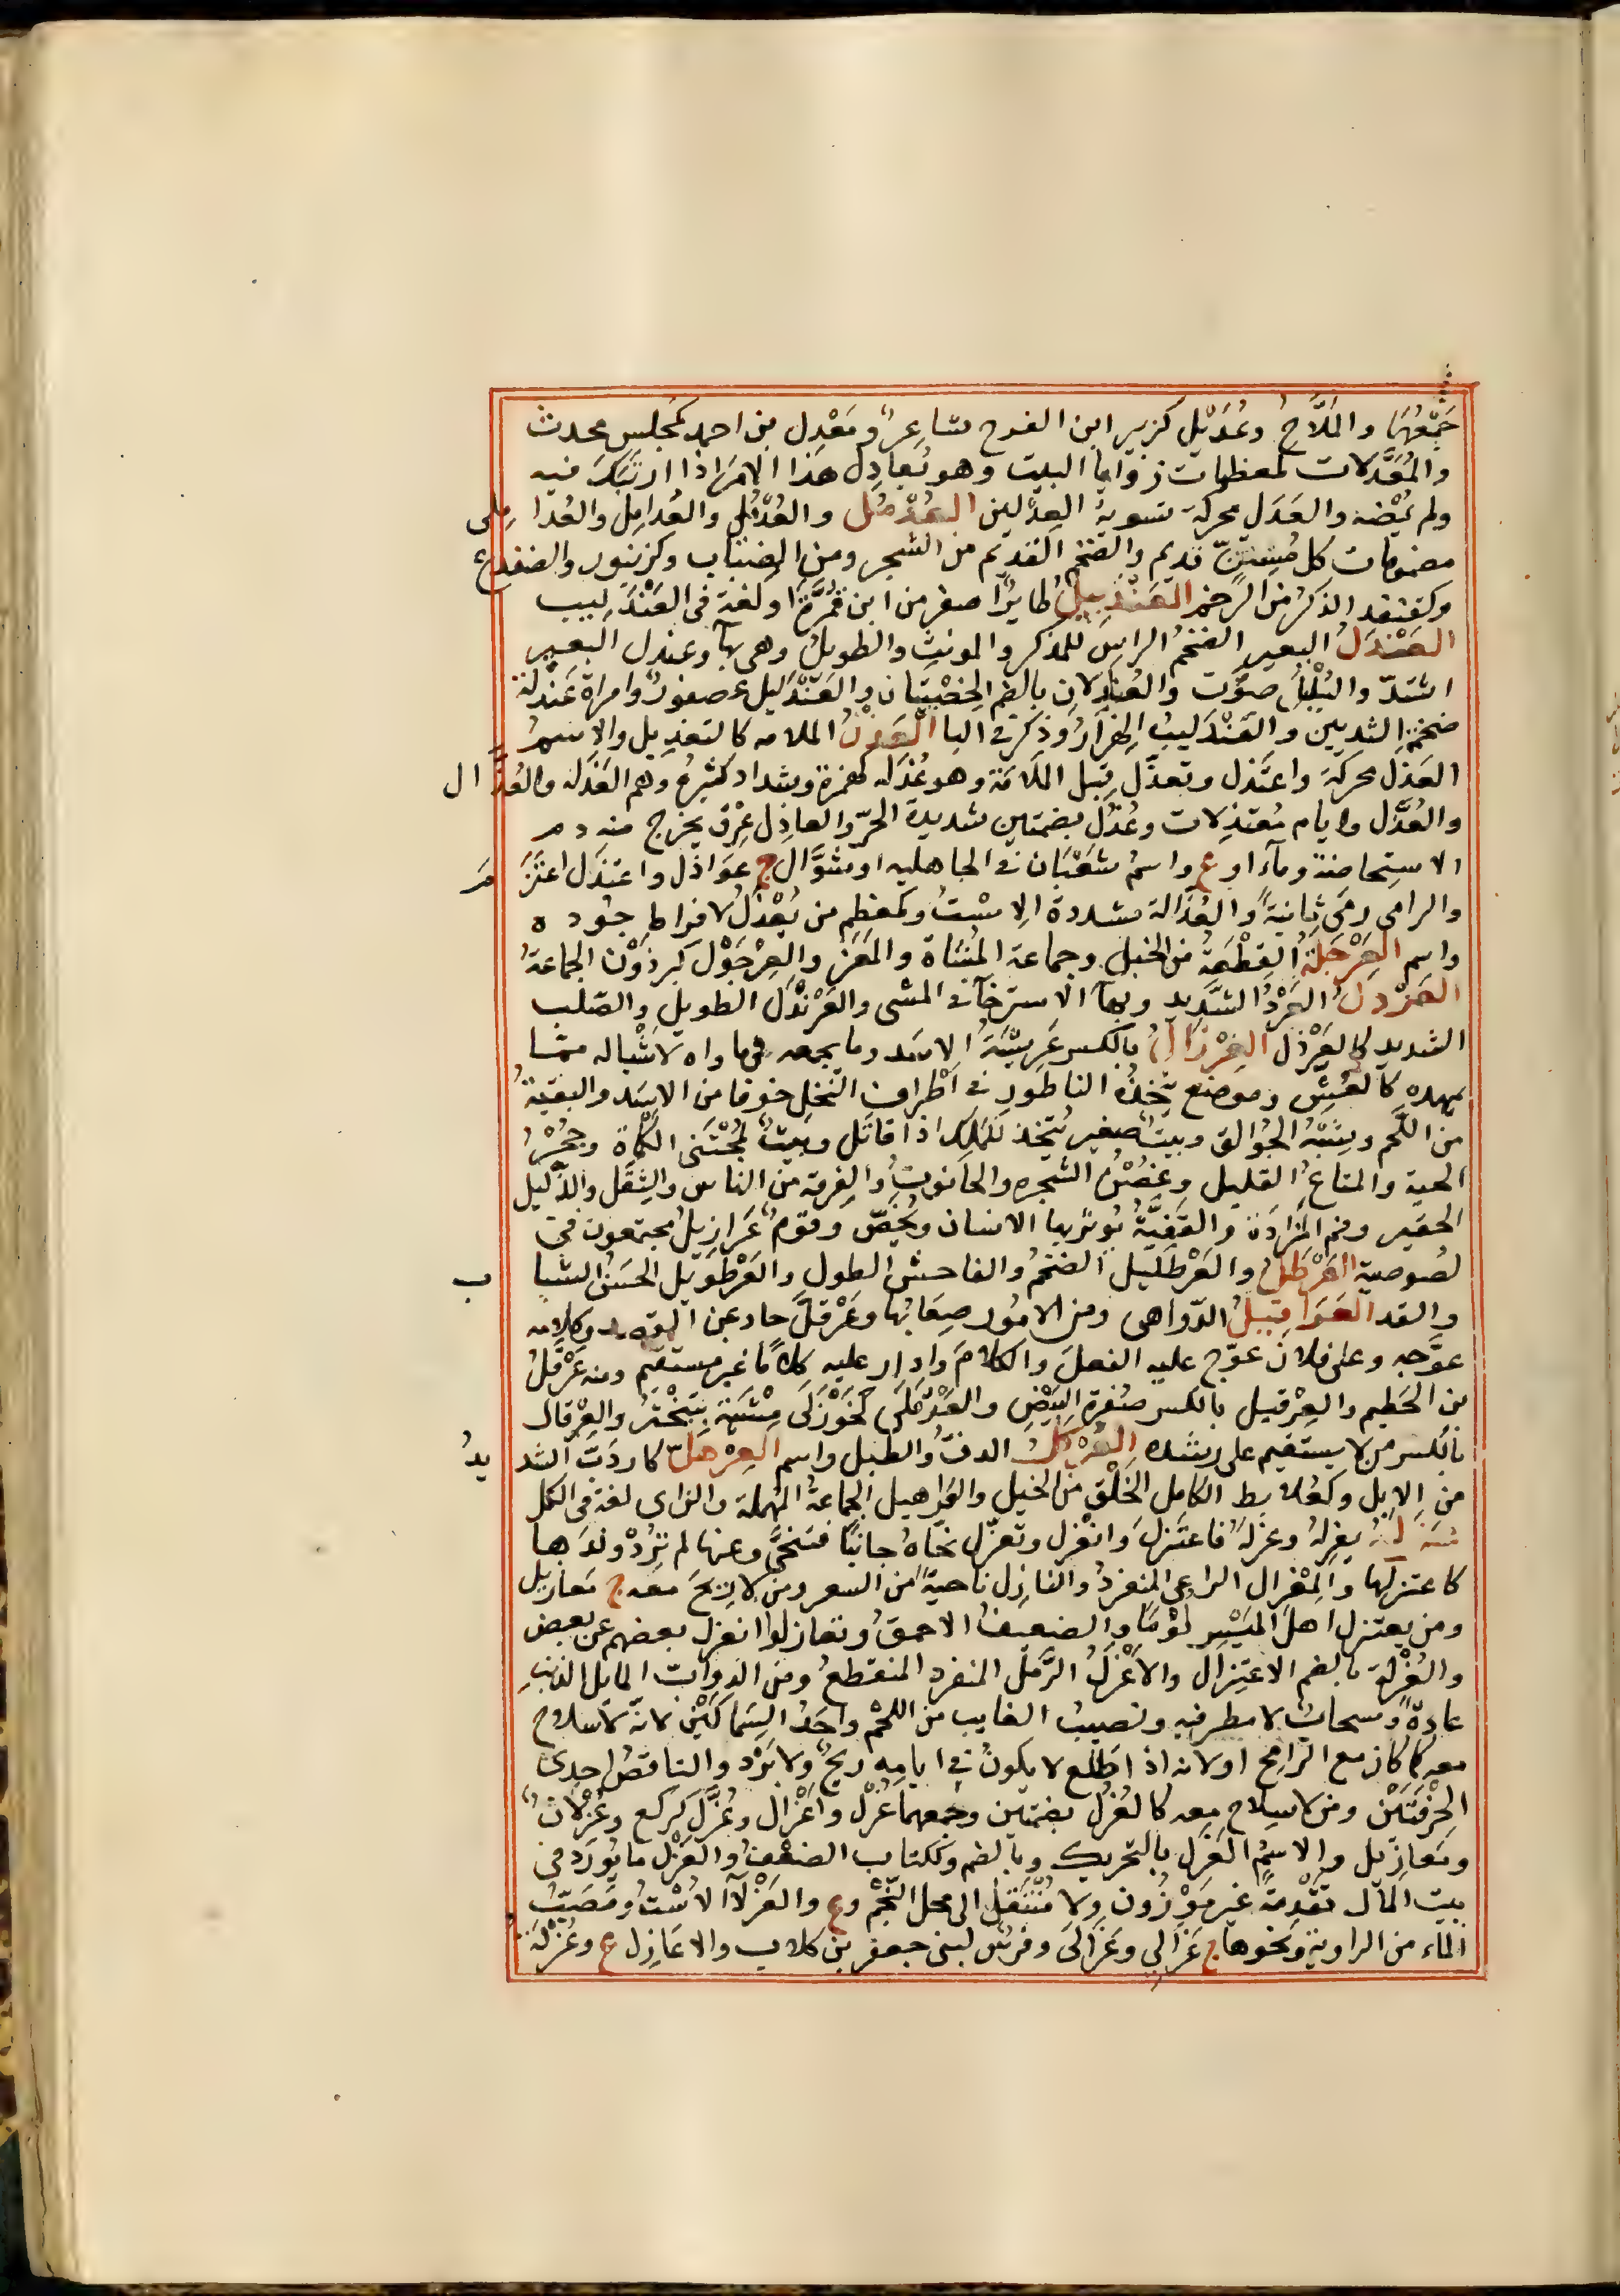 جَمْعُهُمَا والمَلَّاحُ وعُدَيْل كزبير ابن الفرخ شاعِرٌ ومَعْدِل بن احمد كمَجلس محدث
والمُعَدَّلات كمعظمات زوايا البيت وهو يُعادِل هذا الامرَ اذا ارتبَكَ فيه
ولم يُمْضه والعَدَل محركة تسوية العِدْلين العُدْمُل والعُدْمُلى والعُدامِل والعُدامِلى
مضمومات كل مُسِنّ قديم والضخم القديم من الشجر ومن الضباب وكزنبور والضفدع
وكقنفذ الذكر من الرخم العَنْدَبِيلُ طايرٌ اصغر من ابن تُمَّرَةَ او لغة فى العَنْدَلِيب
العَنْدَلُ البعير الضخمُ الراسِ للمذكر والمونثِ والطويلُ وهى بهآ وعندل البعير
اشتدّ والبُلْبلُ صوّت والعُنادِلان بالضم الخصْيتان والعَنْدَليل عصفورٌ وامراة عَنْدلة
ضخمة الثديين والعَنْدَليبُ الهَزَارُ وذكر فى البا العَذْلُ الملامه كالتعذيل والاسمُ
العَذَل محركةً واعتَذل وتعذّل قبل المَلامَة وهو عُذَلَه كهمزة وشداد كثيرُه وهم العَذَله والعُذَّال
والعُذَّل وايام مُعتذِلات وعُذُل بضمتين شديدة الحرّ والعاذِل عِرْق يخرج منه دم
الاستِحاضة ومآء او ع واسمُ شَعْبَان فى الجاهليه او شَوَّال ج عَواذل واعتذل اعتزَم
والرامى رمَى ثانيةً والعُذّالة مشددة الاِسْتُ وكمعظم من يُعْذَلُ لافراط جُوده
واسم العَرْجَلَةُ القِطْعَةُ من الخيل وجماعة المُشَاة والمَعَز والعِرْجَوْل كبرذَوْن الجماعةُ
العَرْدلُ العَرْدُ الشَّديد وبهآء الاسترخآء فى المشى والعَرَنْدَل الطويل والصّلب
الشديد كالعَرْدَل العِرْزَالُ بالكسر عَرِيْسَةُ الاسَد وما يجمعه فى ماواه لاشباله مما
يمهده كالعُشِّ وموضع يتّخذه الناطور فى اَطْراف النخل خوفا من الاسَد والبقيّةُ
من اللَّحم ويُشْبه الجُوالق وبيتٌ صغير يُتّخذ للملك اذا قاتَل وبَيْتٌ لمُجْتَنى الكَمْاة وجُحْرُ
الحيّة والمتاعُ القليل وغصْنُ الشجره والحَانوتُ والفِرقة من الناس والثِّقَل والذَّليل
الحقير وفم المَزادَة والبَقيَّةُ يوثرُ بها الانسان ويُخصُّ وقومٌ عَرازيلُ مجتمعون فى
لصُوصية العَرْطَلُ والعَرْطَليل الضخمُ والفاحش الطول والعَرْطَويل الحَسَنُ الشباب
والقد العَرَاقيلُ الدّواهى ومن الامُور صِعَابُها وعَرْقلَ حاد عن القصد وكلامه
عوَّجه وعلى فلان عوّج عليه الفعلَ والكلامَ وادار عليه كلامًا غير مستقيم ومنه عَرْقَلُ
بن الحَطيم والعِرْقيل بالكسر صفرة البَيْضِ والعَرْقَلَى كخَوْزَلَى مِشْيَة تبَخْتُر والعِرْقال
بالكسر من لا يستقيم على رشده العَرْكَلُ الدفّ والطبل واسم العِرْهَلّ كاردَبّ الشديدُ
من الابل وكعُلابط الكامل الخَلْقِ من الخيل والعَراهيل الجماعةُ المُهملة والزاى لغة فى الكل
عَزَلَهُ يعزلهُ وعزلَهُ فاعتَزلَ وانعَزل وتعزّل نحاهُ جانبًا فتنَحَّى وعنها لم يُرِدْ ولَدَها
كاعتزلها والمِعْزال الراعِى المنفردُ والنازل ناحيةً من السفر ومن لا رُمْحَ مَعه ج مَعازيل
ومن يعتزل اهل المَيْسِر لُوْمًا والضعيفُ الاحمقُ وتعازلوا انعزل بعضهم عن بعض
والعُزْلة بالضم الاعتِزال والاَعْزَلُ الرَّمْل المنفرد المنقطعُ ومن الدوابّ المايل الذنب
عادةً وسحابٌ لا مطر فيه ونصيبُ الغايب من اللحْم واحَدُ السِّمَاكَيْن لانه لا سلاح
معه كما كان مع الرامِح او لانه اذا طلع لا يكونُ فى ايامه ريحٌ ولا بَرْد والناقصُ احدى
الحِرْقَفَتَيْن ومن لا سِلاح معه كالعُزُل بضمتين وجمعهما عُزْل واَعْزال وعُزَّل كركع وعُزْلانٌ
ومَعازيل والاسمُ العَزَل بالتحريك وبالضم وككتاب الضعْفُ والعَزْل ما يُورَد فى
بيت المال تقْدِمَةً غير مَوْزُون ولا مُنْتَقَدٍ الى محل النَّجْم وع والعَزْلآ الاسْتُ ومَصَبُّ
الماء من الراوية ونحوها ج عَزالِى وعَزَالَى وفرسٌ لبنى جعفر بن كلاب والاعَازِل ع وعُزْلَة